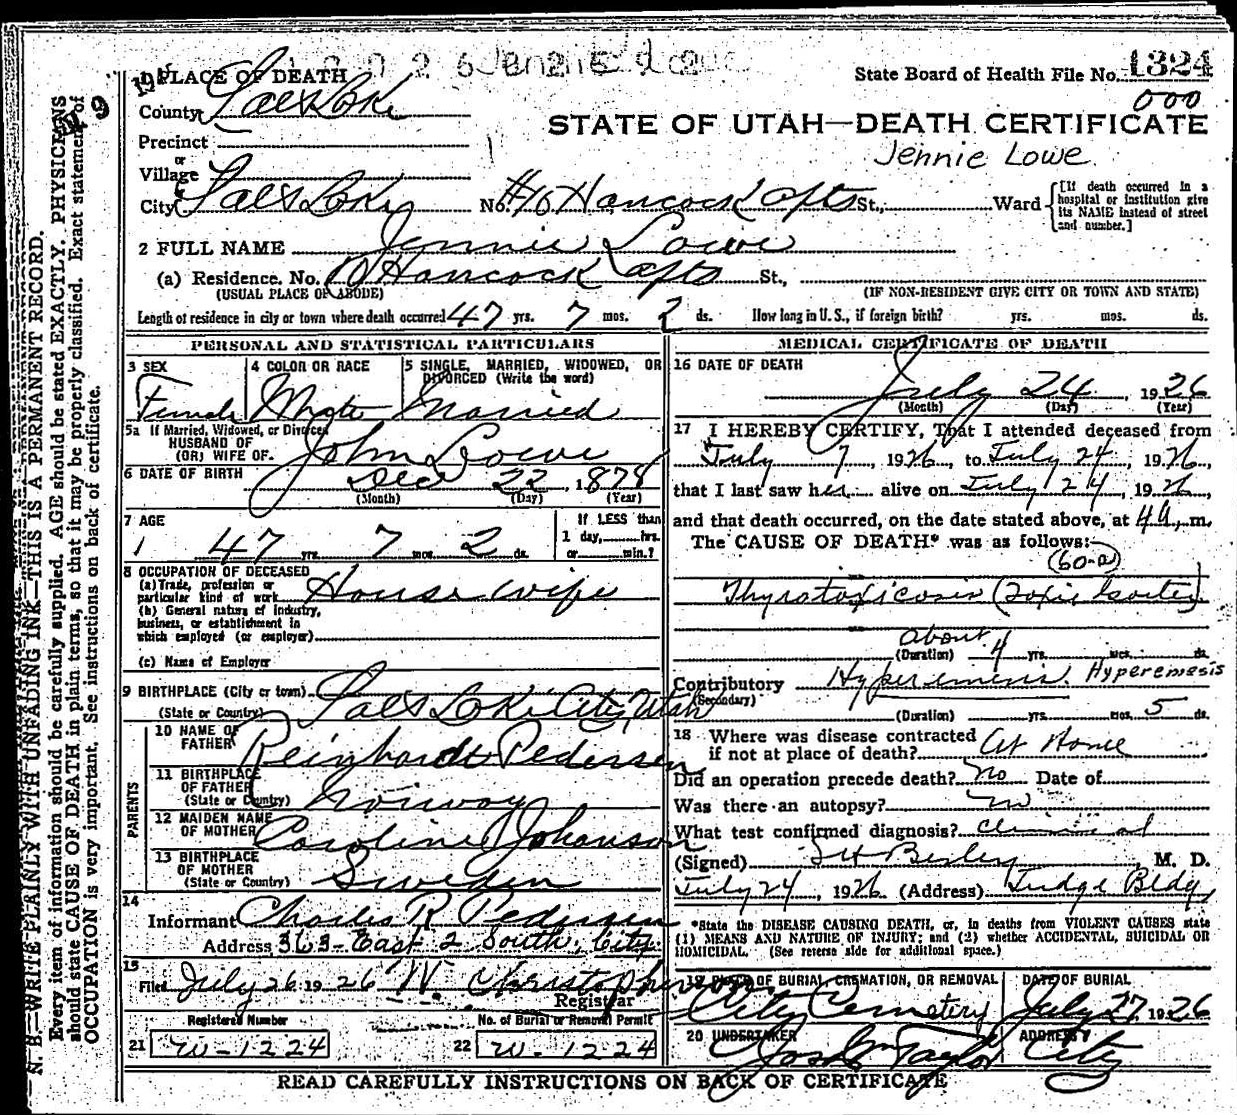 State Board of Health File No. 1324
000
STATE OF UTAH—DEATH CERTIFICATE
Jennie Lowe
1 PLACE OF DEATH
County Salt Lake
Precinct
or
Village
City Salt Lake No. #10 Hancock Apts St., Ward [If death occurred in a hospital or institution give its NAME instead of street and number.]
2 FULL NAME Jennie Lowe
(a) Residence. No. 10 Hancock Apts St.,
(USUAL PLACE OF ABODE) (IF NON-RESIDENT GIVE CITY OR TOWN AND STATE)
Length of residence in city or town where death occurred 47 yrs. 7 mos. 2 ds. How long in U. S., if foreign birth? yrs. mos. ds.
PERSONAL AND STATISTICAL PARTICULARS
3 SEX 4 COLOR OR RACE 5 SINGLE, MARRIED, WIDOWED, OR DIVORCED (Write the word)
Female White Married
5a If Married, Widowed, or Divorced
HUSBAND OF
(OR) WIFE OF John Lowe
6 DATE OF BIRTH Dec 22, 1878
(Month) (Day) (Year)
7 AGE If LESS than
47 yrs. 7 mos. 2 ds. 1 day, hrs.
or min.?
8 OCCUPATION OF DECEASED
(a) Trade, profession or
particular kind of work House wife
(b) General nature of industry,
business, or establishment in
which employed (or employer)
(c) Name of Employer
9 BIRTHPLACE (City or town) Salt Lake City, Utah
(State or Country)
PARENTS
10 NAME OF
FATHER Reinhardt Pedersen
11 BIRTHPLACE
OF FATHER
(State or Country) Norway
12 MAIDEN NAME
OF MOTHER Caroline Johanson
13 BIRTHPLACE
OF MOTHER
(State or Country) Sweden
14
Informant Charles R Pedersen
Address 363-East 2 South, City
15
Filed July 26 1926 W. Christopherson
Registrar
Registered Number No. of Burial or Removal Permit
21 W-1224 22 W-1224
MEDICAL CERTIFICATE OF DEATH
16 DATE OF DEATH
July 24, 1926
(Month) (Day) (Year)
17 I HEREBY CERTIFY, That I attended deceased from
July 7, 1926, to July 24, 1926,
that I last saw her alive on July 24, 1926,
and that death occurred, on the date stated above, at 4 A. m.
The CAUSE OF DEATH* was as follows:
(60-a)
Thyrotoxicosis (Toxic Goiter)
about
(Duration) 4 yrs. mos. ds.
Contributory Hyperemesis. Hyperemesis
(Secondary)
(Duration) yrs. mos. 5 ds.
18 Where was disease contracted
if not at place of death? At Home
Did an operation precede death? No Date of
Was there an autopsy? No
What test confirmed diagnosis? Clinical
(Signed) , M. D.
July 24, 1926 (Address) Judge Bldg,
*State the DISEASE CAUSING DEATH, or, in deaths from VIOLENT CAUSES state
(1) MEANS AND NATURE OF INJURY; and (2) whether ACCIDENTAL, SUICIDAL OR
HOMICIDAL. (See reverse side for additional space.)
19 PLACE OF BURIAL, CREMATION, OR REMOVAL DATE OF BURIAL
City Cemetery July 27, 1926
20 UNDERTAKER ADDRESS
Jos Wm Taylor City
READ CAREFULLY INSTRUCTIONS ON BACK OF CERTIFICATE
N. B.—WRITE PLAINLY WITH UNFADING INK—THIS IS A PERMANENT RECORD.
Every item of information should be carefully supplied. AGE should be stated EXACTLY. PHYSICIANS
should state CAUSE OF DEATH in plain terms, so that it may be properly classified. Exact statement of
OCCUPATION is very important. See instructions on back of certificate.